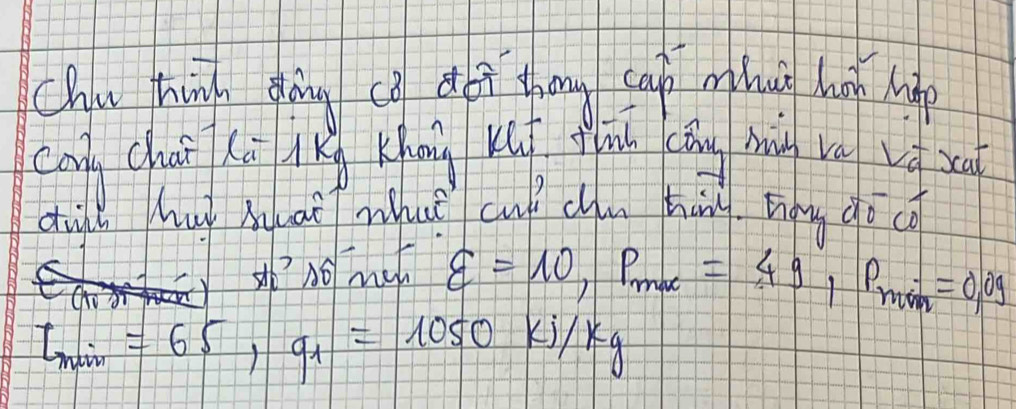 Chu trình động cơ đốt trong cấp nhiệt hỗn hợp
công chất là 1kg không khí tính công sinh ra và xác
định hiệu suất nhiệt của chu trình. trong đó có
tỉ số nén ε = 10, Pmax = 49, Pmin = 0,09
tmin = 65, q1 = 1050 kj/kg